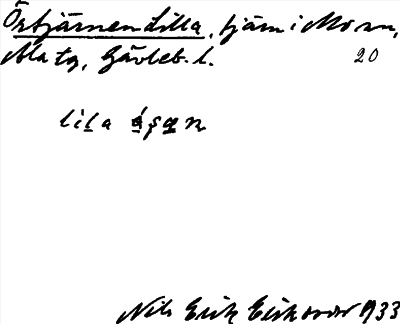 Östjärnen Lilla, tjärn i Mo sn,
Ala tg, Gävleb. l. 20
lila
Nils Erik Eriksson 1933